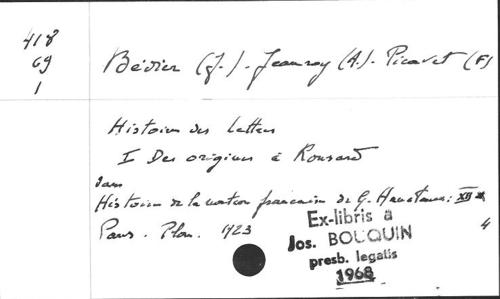 418
69
1
Bédier (J.). Jeanroy (A.). Picavet (F)
Histoire des Lettres
I Des origines à Ronsard
dans
Histoire de la nation française de G. Hanotaux: XII
Paris. Plon. 1923
4
Ex-libris a
Jos. BOUQUIN
presb. legatis
1968